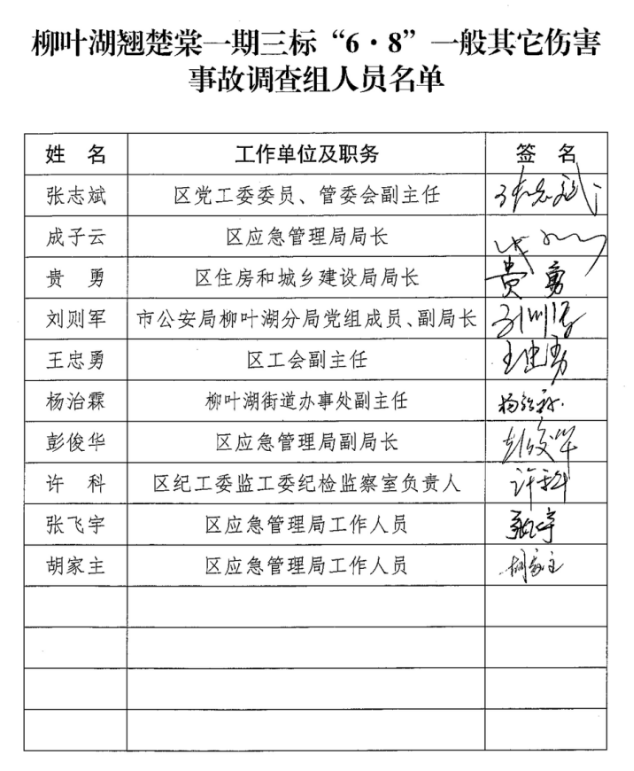 柳叶湖翘楚棠一期三标“6·8”一般其它伤害
事故调查组人员名单
姓 名 工作单位及职务 签 名
张志斌 区党工委委员、管委会副主任 张志斌
成子云 区应急管理局局长
贵 勇 区住房和城乡建设局局长 贵勇
刘则军 市公安局柳叶湖分局党组成员、副局长
王忠勇 区工会副主任 王忠勇
杨治霖 柳叶湖街道办事处副主任 杨治霖
彭俊华 区应急管理局副局长 彭俊华
许 科 区纪工委监工委纪检监察室负责人 许科
张飞宇 区应急管理局工作人员 张飞宇
胡家主 区应急管理局工作人员 胡家主